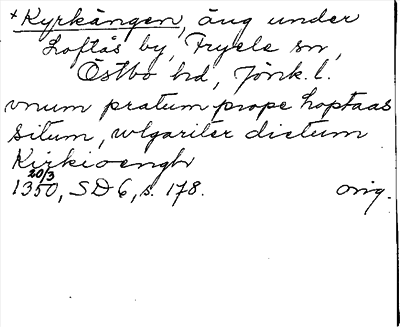 + Kyrkängen, äng under
Loftås by, Fryele sn,
Östbo hd, Jönk. l.
vnum pratum prope hoptaas
situm, wlgariter dictum
Kirkioengh
20/3
1350, SD 6, s. 178. orig.